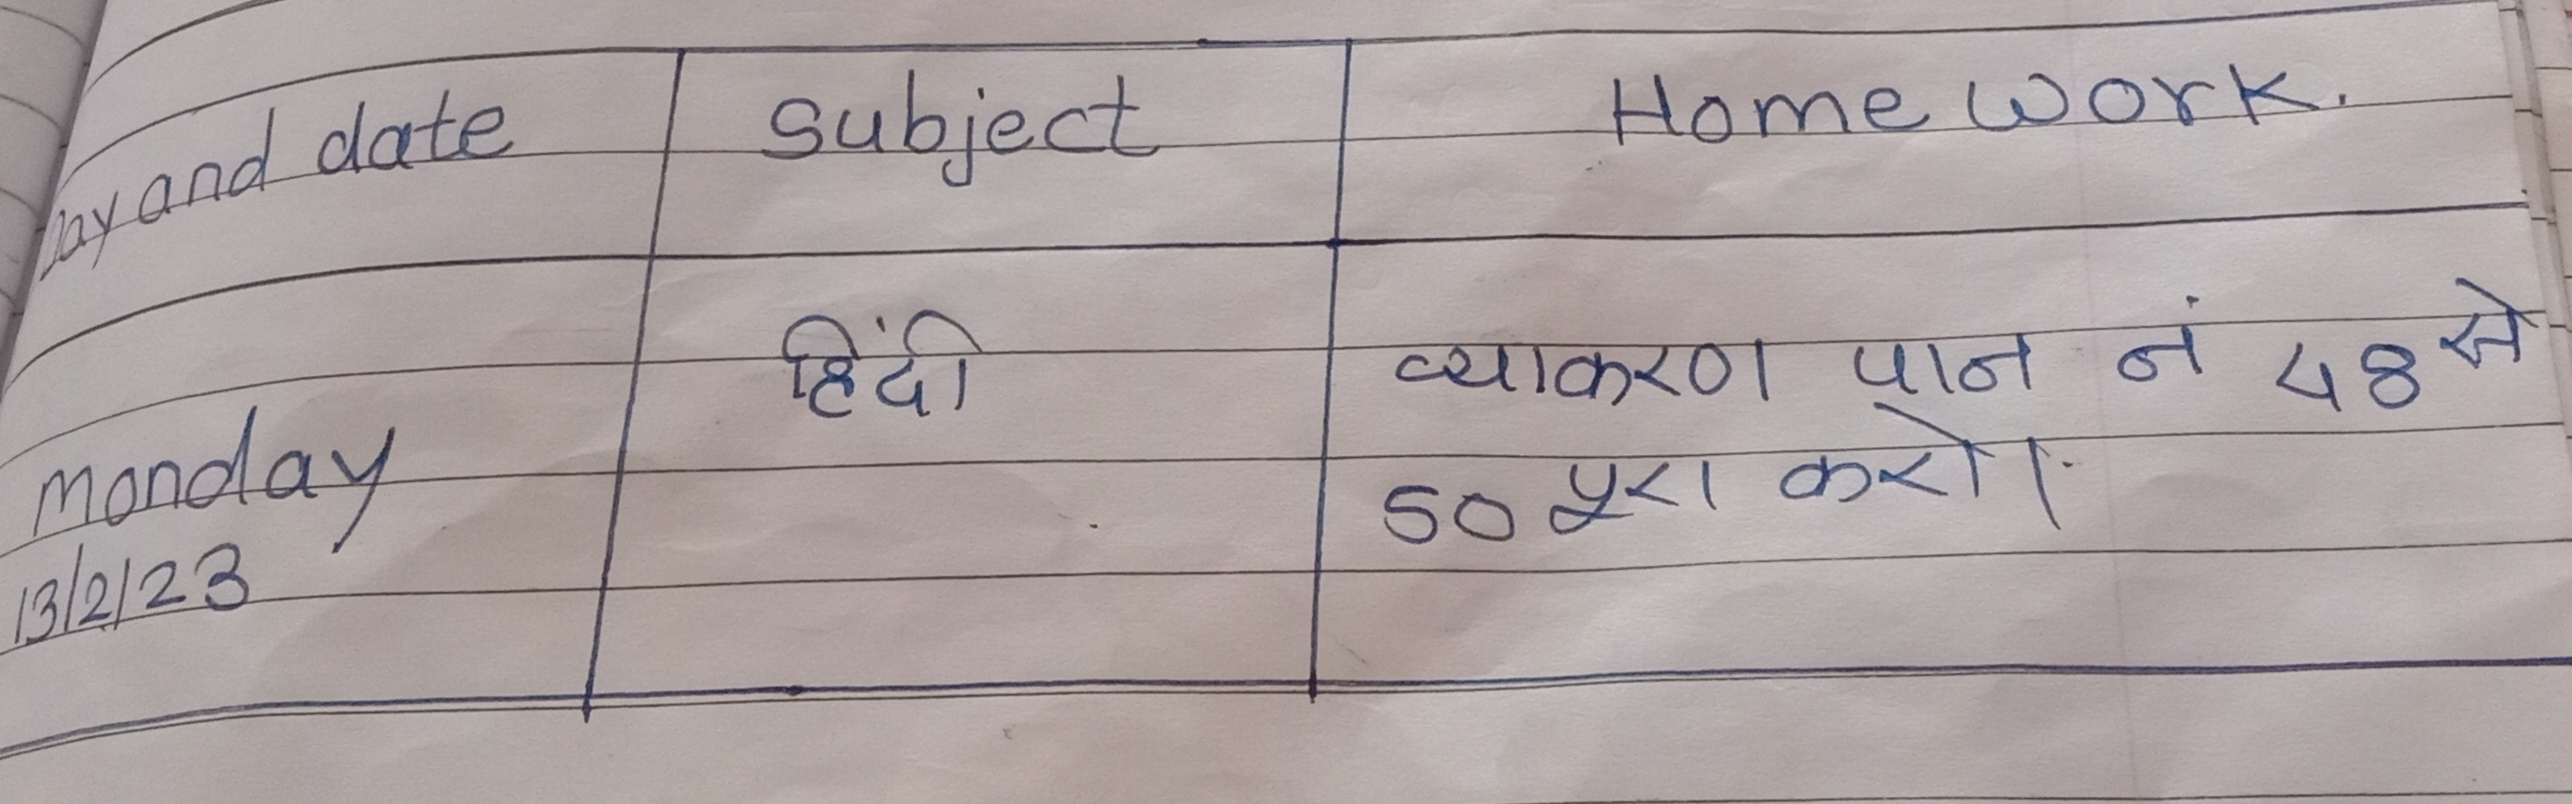 Day and date Subject Home work.
हिंदी व्याकरण पान नं 48 से
Monday 50 पूरा करो।
13/2/23